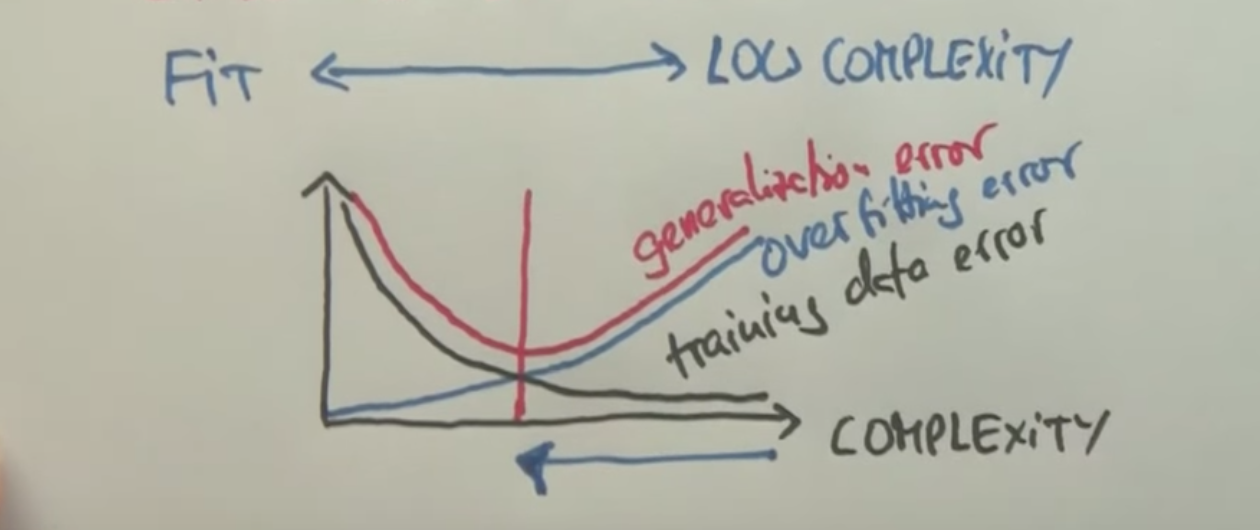 FiT LOW COMPLEXiTY
generalization error
overfitting error
training data error
COMPLEXiTY